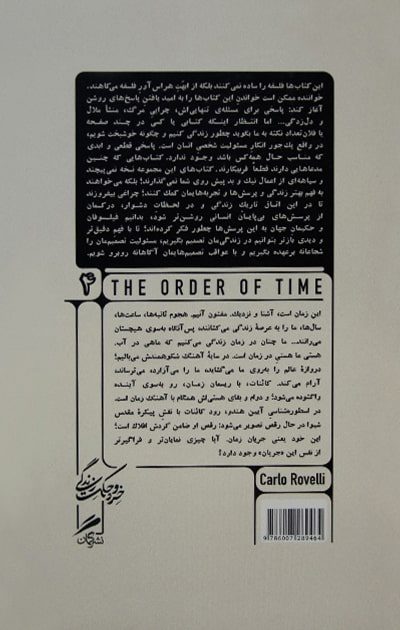 این کتاب‌ها فلسفه را ساده نمی‌کنند بلکه از ابهتِ هراس‌آورِ فلسفه می‌کاهند.
خواننده ممکن است خواندنِ این کتاب‌ها را به امید یافتنِ پاسخ‌های روشن
آغاز کند: پاسخی برای مسئله‌ی تنهایی‌اش، چراییِ مرگ، منشأ ملال
و دل‌زدگی... اما انتظار اینکه کتابی یا کسی در چند صفحه
یا فلان‌تعداد نکته به ما بگوید چطور زندگی کنیم و چگونه خوشبخت شویم،
در واقع یک‌جور انکار مسئولیت شخصیِ انسان است. پاسخی قطعی و ابدی
که مناسب حال همه‌کس باشد وجود ندارد. کتاب‌هایی که چنین
مدعاهایی دارند قطعاً فریبکارند. کتاب‌های این مجموعه نسخه نمی‌پیچند
و سیاهه‌ای از اعمال نیک و بد پیش روی شما نمی‌گذارند؛ بلکه می‌خواهند
به فهم بهتر زندگی و پرسش‌ها و تجربه‌هایمان کمک کنند؛ چراغی بیفروزند
تا در این اتاق تاریک زندگی و در لحظات دشوار، درکمان
از پرسش‌های بی‌پایان انسانی روشن‌تر شود، بدانیم فیلسوفان
و حکیمان جهان به این پرسش‌ها چطور فکر کرده‌اند؛ تا با فهم دقیق‌تر
و دیدی بازتر بتوانیم در زندگی‌مان تصمیم بگیریم، مسئولیت تصمیم‌مان را
شجاعانه برعهده بگیریم و با عواقب تصمیم‌هایمان آگاهانه روبرو شویم.
۴ THE ORDER OF TIME
این زمان است، آشنا و نزدیک. مفتون آنیم. هجوم ثانیه‌ها، ساعت‌ها،
سال‌ها، ما را به عرصهٔ زندگی می‌کشاند، پس‌آنگاه به‌سوی هیچستان
می‌راند... ما چنان در زمان زندگی می‌کنیم که ماهی در آب.
هستی ما هستی در زمان است. در سایهٔ آهنگ شکوهمندش می‌بالیم؛
دروازهٔ عالم را به‌روی ما می‌گشاید، ما را می‌آزارد، می‌ترساند،
آرام می‌کند. کائنات، با ریسمان زمان، رو به‌سوی آینده
واگشوده می‌شود؛ و دوام و بقای هستی‌اش همگام با آهنگ زمان است.
در اسطوره‌شناسی آیین هندو، رود کائنات با نقش پیکرهٔ مقدس
شیوا در حال رقص تصویر می‌شود: رقص او ضامن گردش افلاک است؛
این خود یعنی جریان زمان. آیا چیزی نمایان‌تر و فراگیرتر
از نفس این «جریان» وجود دارد؟
Carlo Rovelli
خرد و حکمت زندگی
نشر گمان
9786007289464